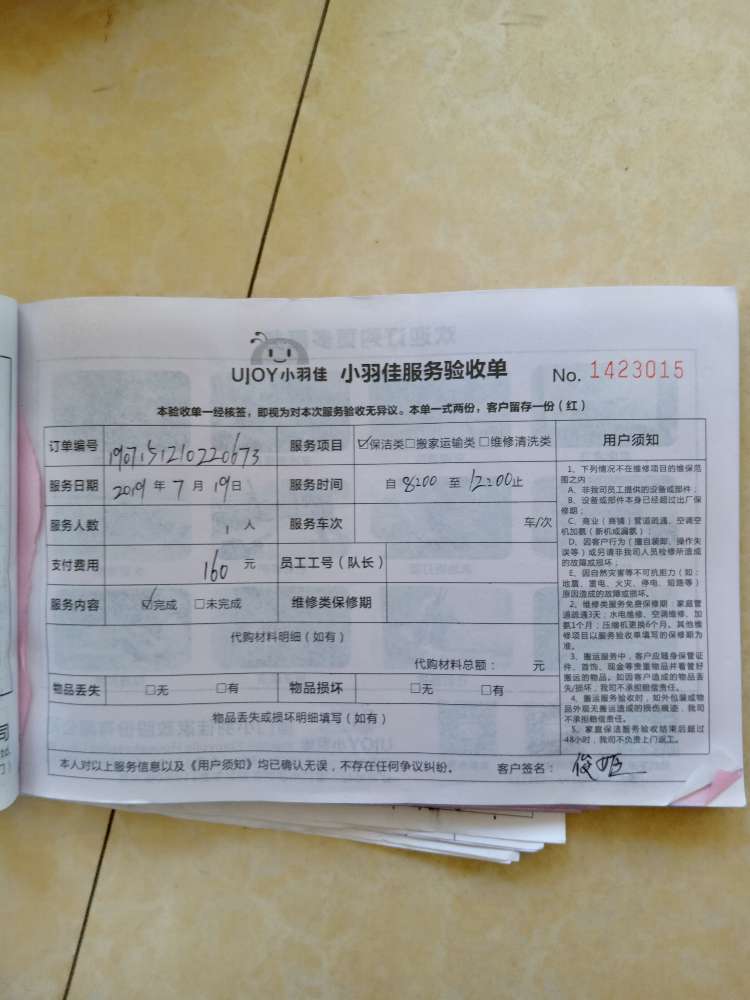 UJOY小羽佳 小羽佳服务验收单 No. 1423015
本验收单一经核签，即视为对本次服务验收无异议。本单一式两份，客户留存一份（红）
订单编号 1907151210220673 服务项目 ☑保洁类□搬家运输类□维修清洗类
服务日期 2019 年 7 月 19 日 服务时间 自 8:00 至 12:00 止
服务人数 1 人 服务车次 车/次
支付费用 160 元 员工工号（队长）
服务内容 ☑完成 □未完成 维修类保修期
代购材料明细（如有）
代购材料总额： 元
物品丢失 □无 □有 物品损坏 □无 □有
物品丢失或损坏明细填写（如有）
用户须知
1、下列情况不在维修项目的维保范
围之内
A、非我司员工提供的设备或部件；
B、设备或部件本身已经超过出厂保
修期；
C、商业（商铺）管道疏通、空调空
机加氨（新机或漏氨）；
D、因客户行为（擅自装卸、操作失
误等）或另请非我司人员检修所造成
的故障或损坏；
E、因自然灾害等不可抗拒力（如：
地震、雷电、火灾、停电、短路等）
原因造成的故障或损坏。
2、维修类服务免费保修期：家庭管
道疏通3天；水电维修、空调维修、加
氨1个月；压缩机更换6个月。其他维
修项目以服务验收单填写的保修期为
准。
3、搬运服务中，客户应随身保管证
件、首饰、现金等贵重物品并看管好
搬运的物品。如因客户造成的物品丢
失/损坏，我司不承担赔偿责任。
4、搬运服务验收时，如外包装或物
品外层无搬运造成的损伤痕迹，我司
不承担赔偿责任。
5、家庭保洁服务验收结束后超过
48小时，我司不负责上门返工。
本人对以上服务信息以及《用户须知》均已确认无误，不存在任何争议纠纷。 客户签名：